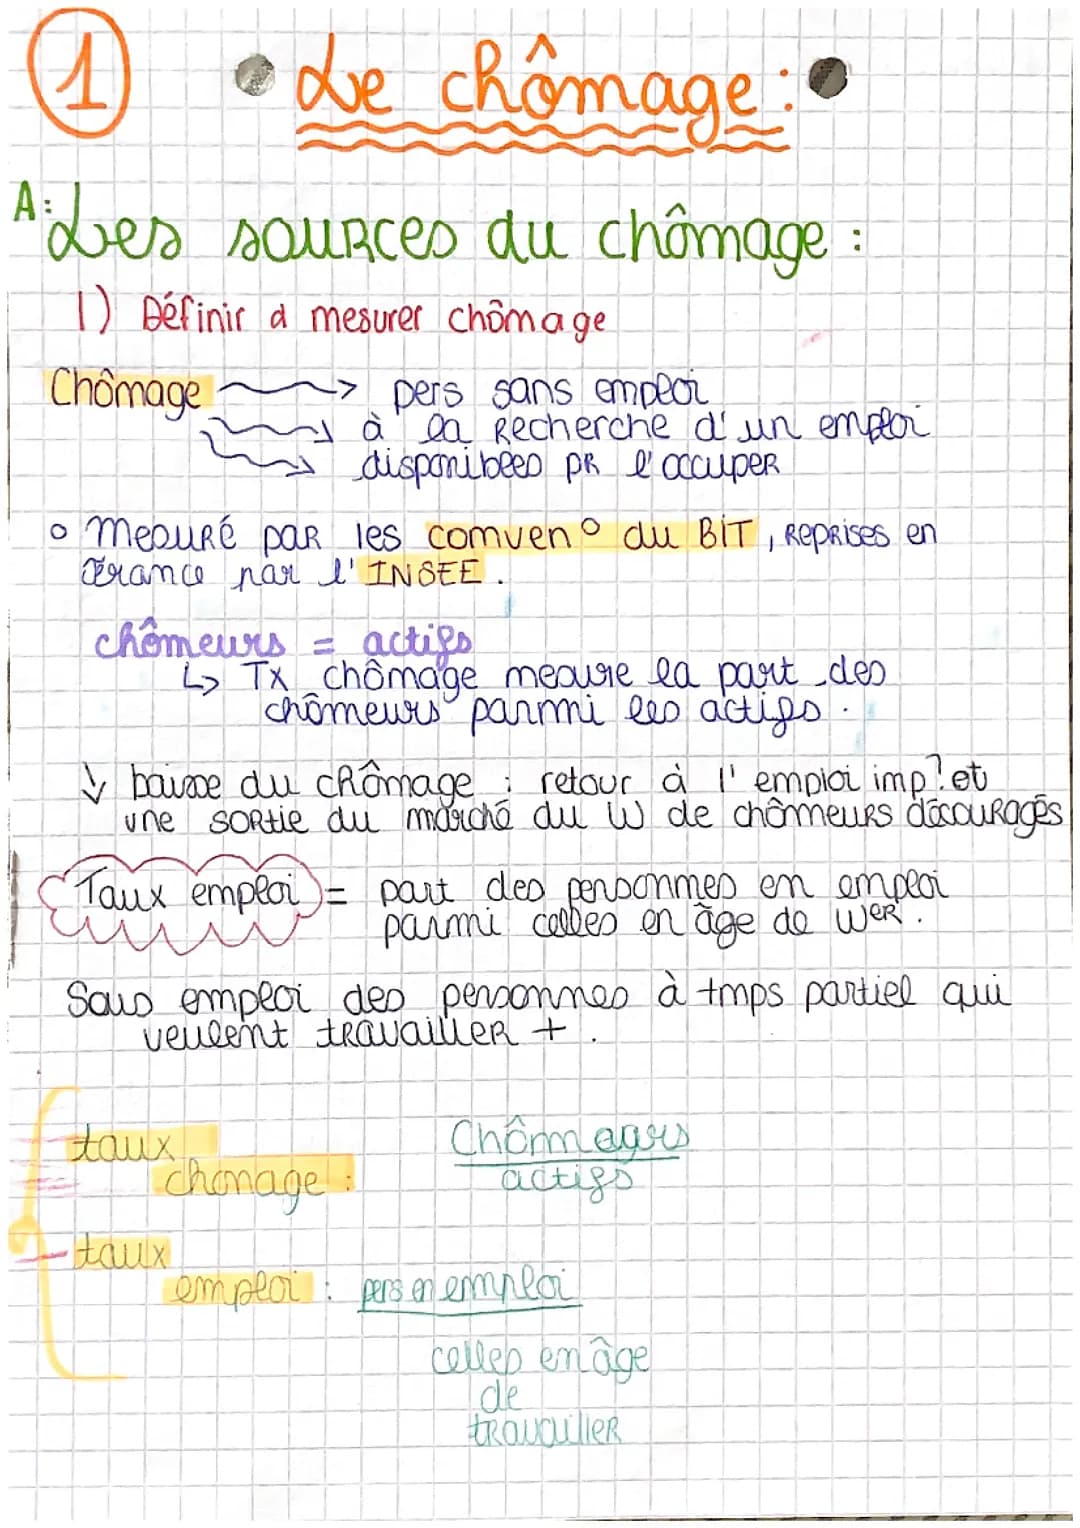 1
Le chômage :
A: Les sources du chômage :
1) Définir & mesurer chômage
Chômage → pers sans emploi
→ à la recherche d'un emploi
→ disponibles pr l'occuper
° mesuré par les conven° du BIT, reprises en
France par l'INSEE.
chômeurs = actifs
↳ Tx chômage mesure la part des
chômeurs parmi les actifs.
↓ baisse du chômage : retour à l'emploi imp? et
une sortie du marché du W de chômeurs découragés
Taux emploi = part des personnes en emploi
parmi celles en âge de Wer.
Sous emploi des personnes à tmps partiel qui
veulent travailler +.
taux
chomage : Chômeurs
actifs
taux
emploi : pers en emploi
celles en âge
de
travailler